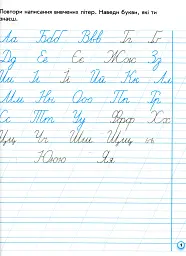 Повтори написання вивчених літер. Наведи букви, які ти
знаєш.
Аа Бб Вв Гг Ґґ
Дд Ее Єє Жж Зз
Ии Іі Її Йй Кк Лл
Мм Нн Оо Пп Рр
Сс Тт Уу Фф Хх
Цц Чч Шш Щщ ь
Юю Яя
1